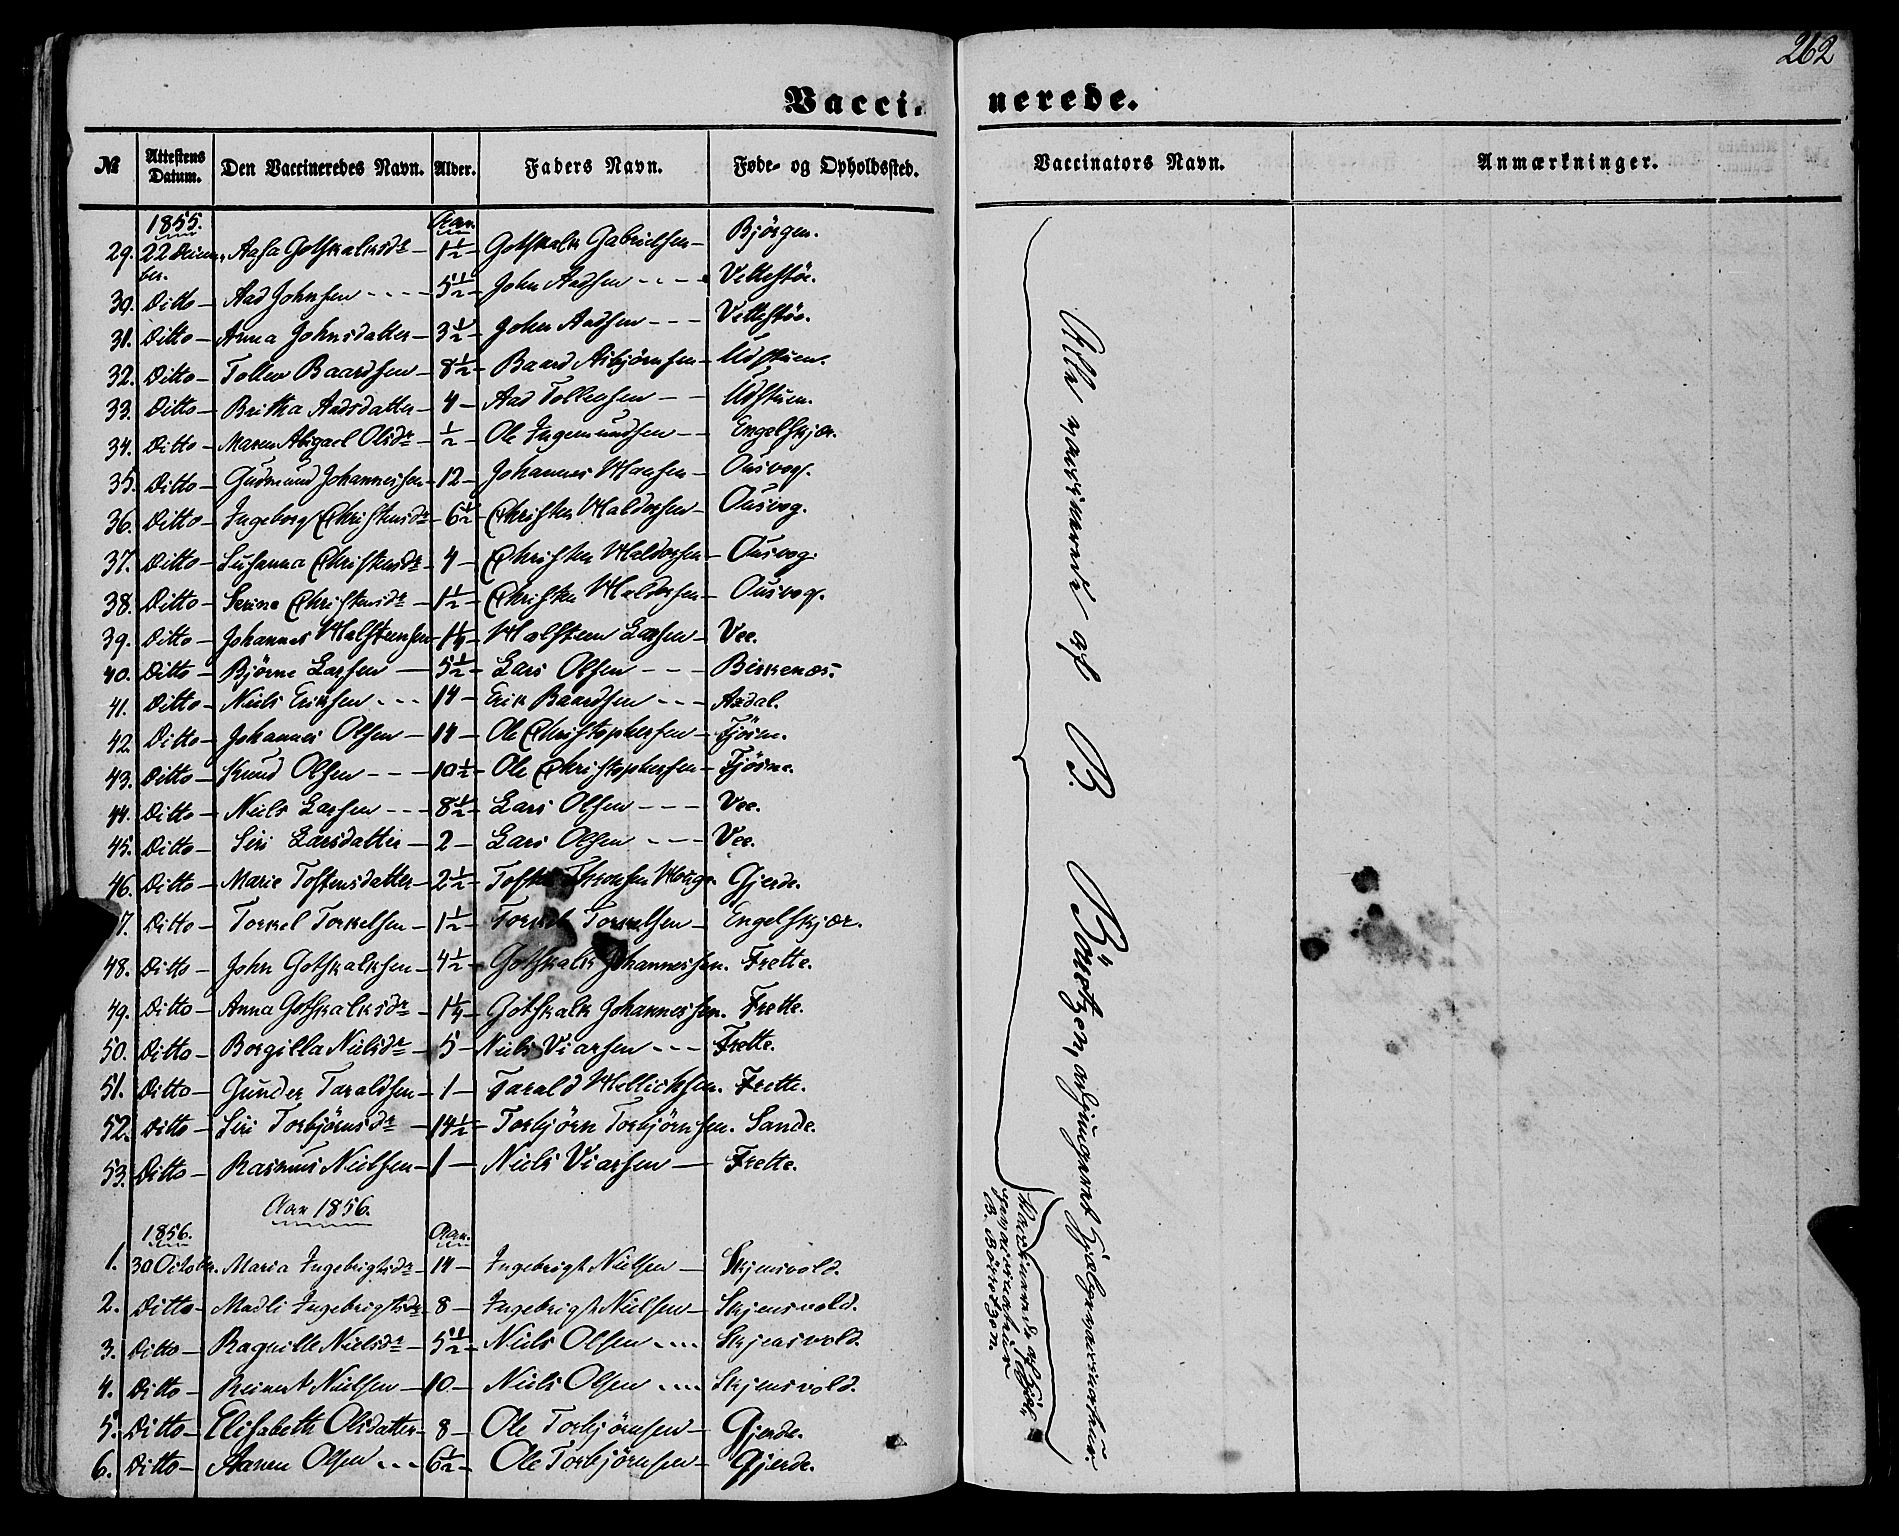 262
Vacci- nerede.
№ Attestens Datum. Den Vaccineredes Navn. Alder. Faders Navn. Føde- og Opholdssted. Vaccinators Navn. Anmærkninger.
1855. Aar.
29. 22 Decem- Aasa Gotskalksdr 1½ Gotskalk Gabrielsen Bjørgen.
ber.
30. Ditto Aad Johnsen 5½ John Aadsen Vettestøe.
31. Ditto Anna Johnsdatter 3½ John Aadsen Vettestøe.
32. Ditto Tollev Baardsen 8½ Baard Asbjørnsen Udstuen.
33. Ditto Britha Aadsdatter 4 Aad Tollevsen Udstuen.
34. Ditto Maren Abigael Olsdr ½ Ole Ingemundsen Engelskjær.
35. Ditto Gudmund Johannessen 12 Johannes Hansen Ausvog.
36. Ditto Ingeborg Christensdr 6½ Christen Haldorsen Ausvog.
37. Ditto Susanna Christensdr 4 Christen Haldorsen Ausvog.
38. Ditto Serine Christensdr 1½ Christen Haldorsen Ausvog.
39. Ditto Johannes Halsteinsen 1¼ Halsteen Larsen Vee.
40. Ditto Bjørne Larsen 5½ Lars Olsen Birkenæs.
41. Ditto Niels Eriksen 14 Erik Baardsen Axdal.
42. Ditto Johannes Olsen 14 Ole Christophersen Tjøsne.
43. Ditto Knud Olsen 10½ Ole Christophersen Tjøsne.
44. Ditto Niels Larsen 8½ Lars Olsen Vee.
45. Ditto Siri Larsdatter 2 Lars Olsen Vee.
46. Ditto Marie Tostensdatter 2½ Tosten Thronsen Houge Gjerde.
7. Ditto Torkel Torkelsen 1½ Torkel Torkelsen Engelskjær.
48. Ditto John Gotskalksen 4½ Gotskalk Johannessen. Frette.
49. Ditto Anna Gotskalksdr 1¼ Gotskalk Johannessen. Frette.
50. Ditto Borgilla Nielsdr 5 Niels Viarsen Frette.
51. Ditto Gunder Taraldsen 1 Tarald Hellicksen. Frette.
52. Ditto Siri Torbjørnsdr 14½ Torbjørn Torbjørnsen. Sande.
53. Ditto Rasmus Nielsen 1 Niels Viarsen Frette.
Aar 1856.
1856. Aar.
1. 30 October. Maria Ingebrigtsdr 14 Ingebrigt Nielsen Skjensvold.
2. Ditto Madli Ingebrigtsdr 8 Ingebrigt Nielsen Skjensvold.
3. Ditto Ragnille Nielsdr 5½ Niels Olsen Skjensvold.
4. Ditto Reinert Nielsen 10 Niels Olsen Skjensvold.
5. Ditto Elisabeth Olsdatter 8 Ole Torbjørnsen Gjerde.
6. Ditto Aanen Olsen 6½ Ole Torbjørnsen Gjerde.
Alle vaccinerede af B. Böretzen, Hjælpevaccinateur.
Vaccinerede af Hjelpevaccinateur
B. Böretzen.